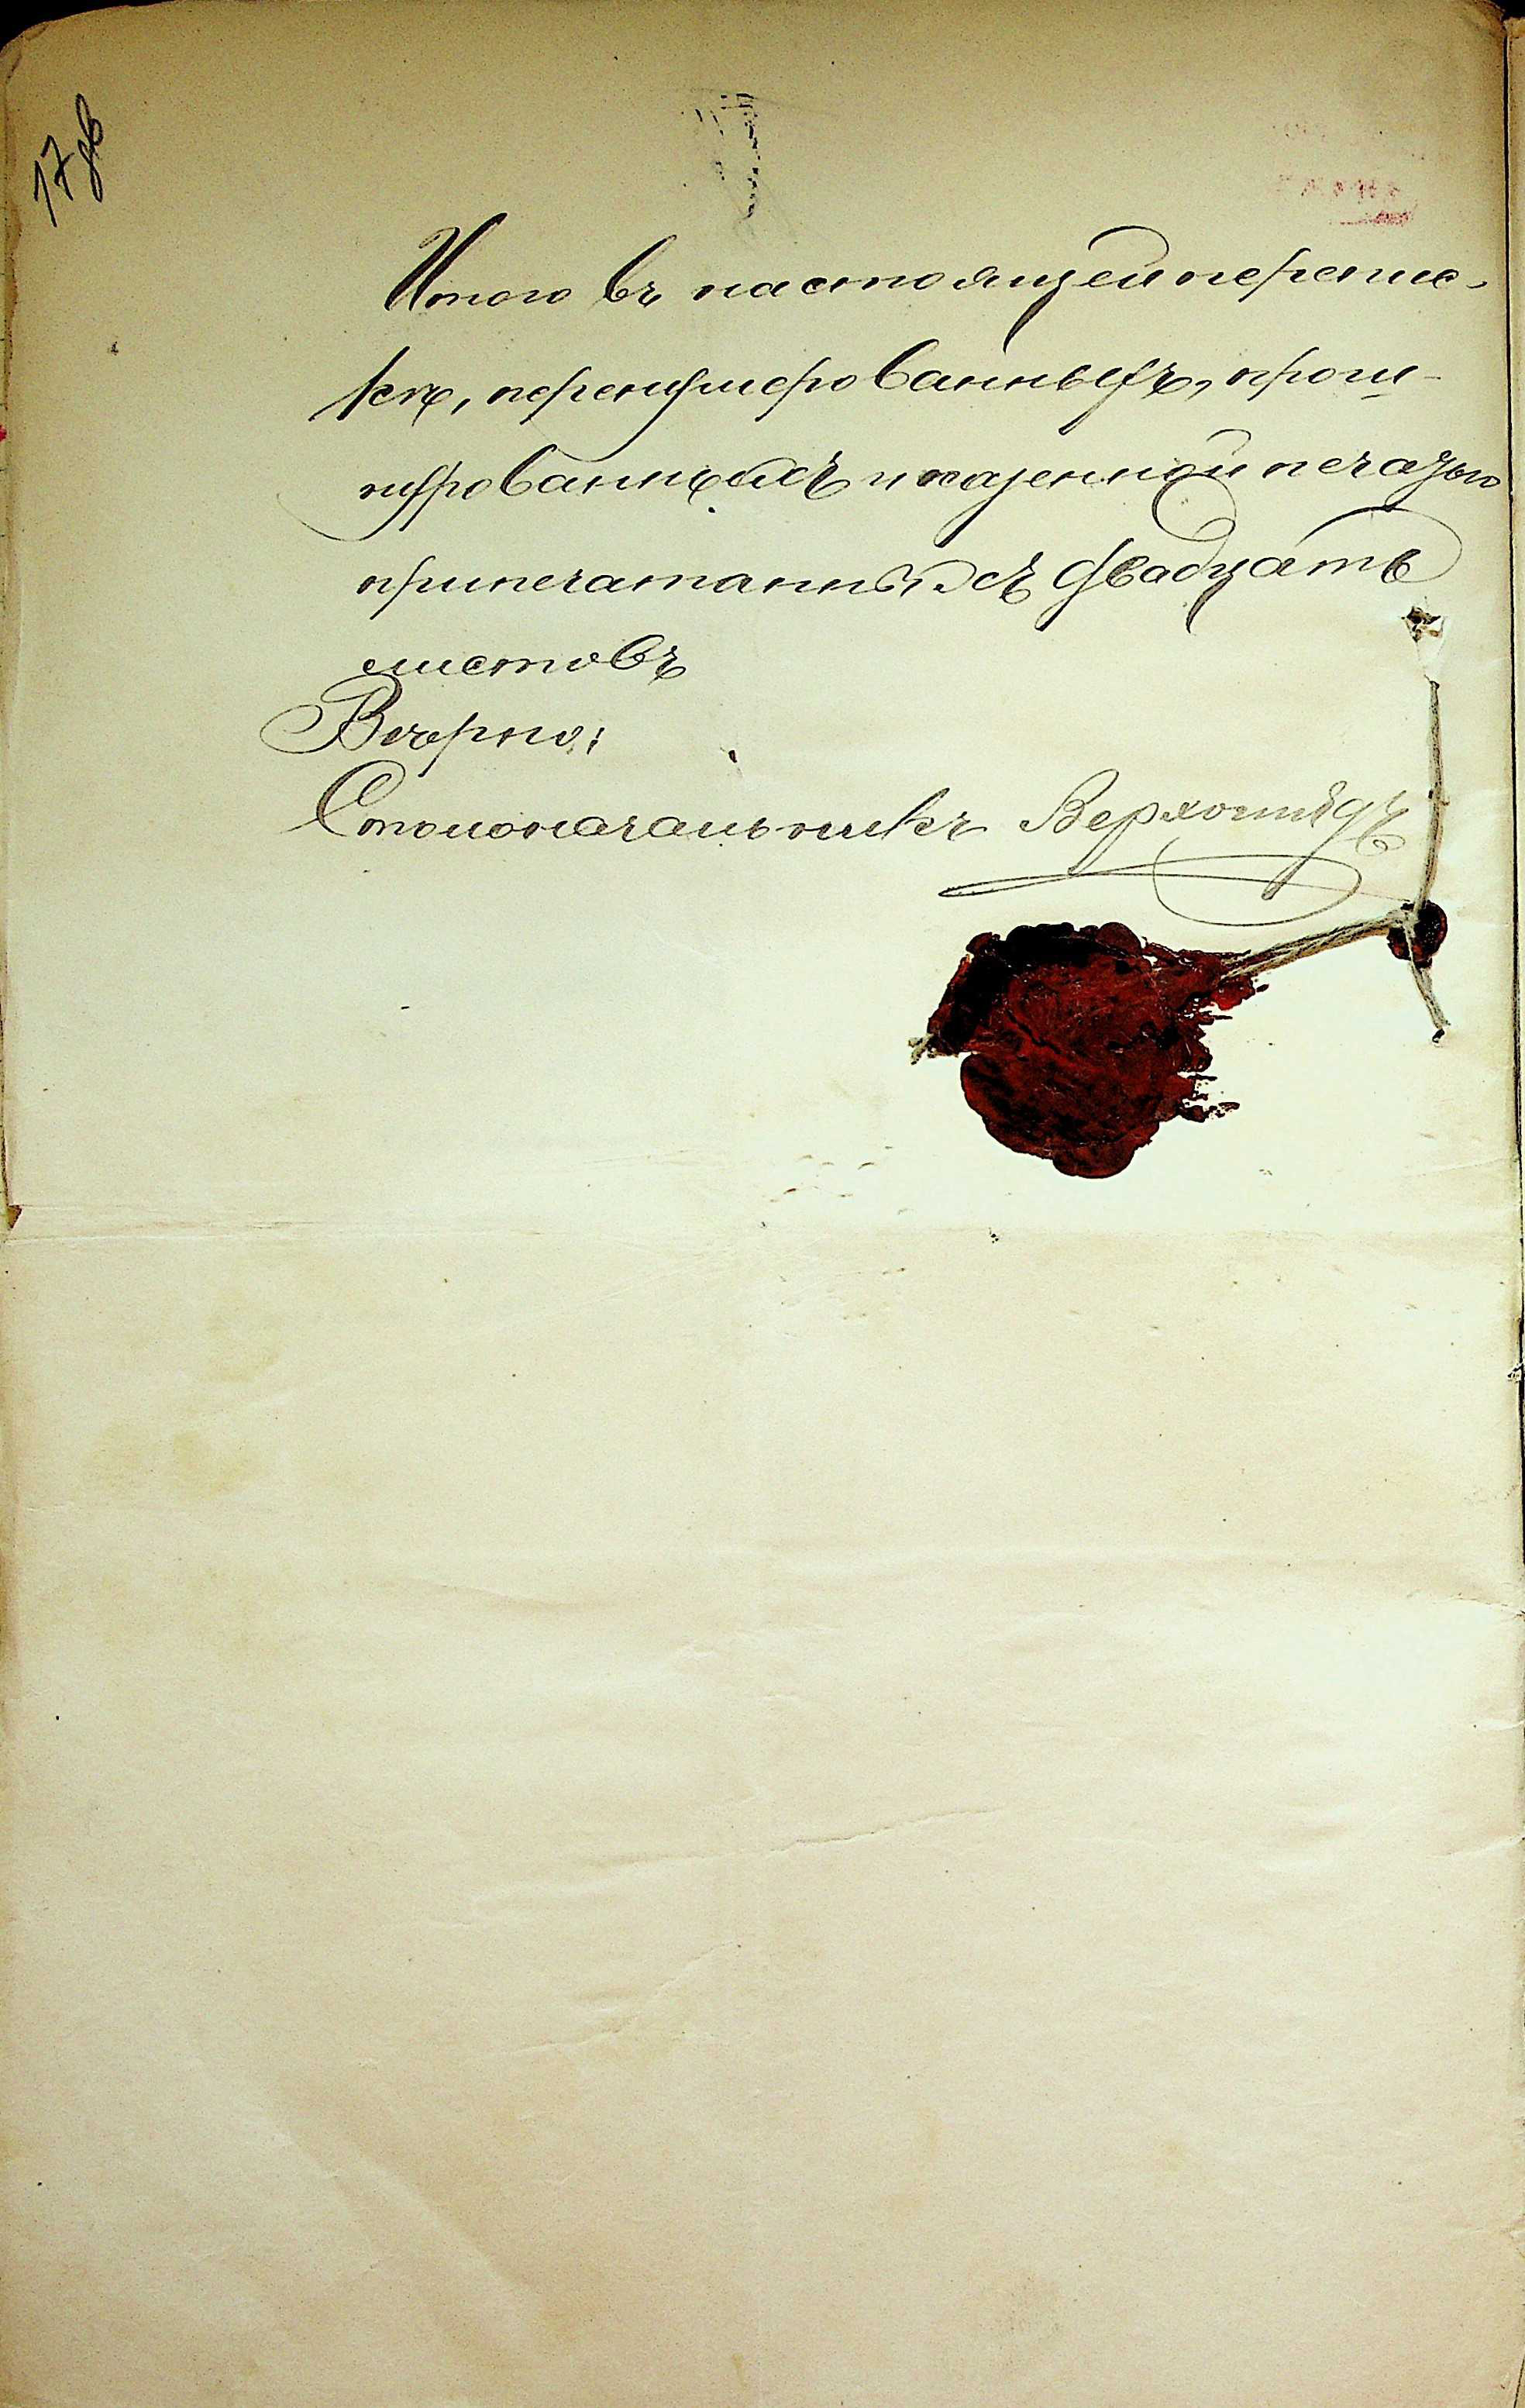 17 об
Итого въ настоящей перепис-
кѣ, перенумерованныхъ, прош-
нурованныхъ и казенной печатью
припечатанныхъ двадцать
листовъ
Вѣрно:
Столоначальникъ